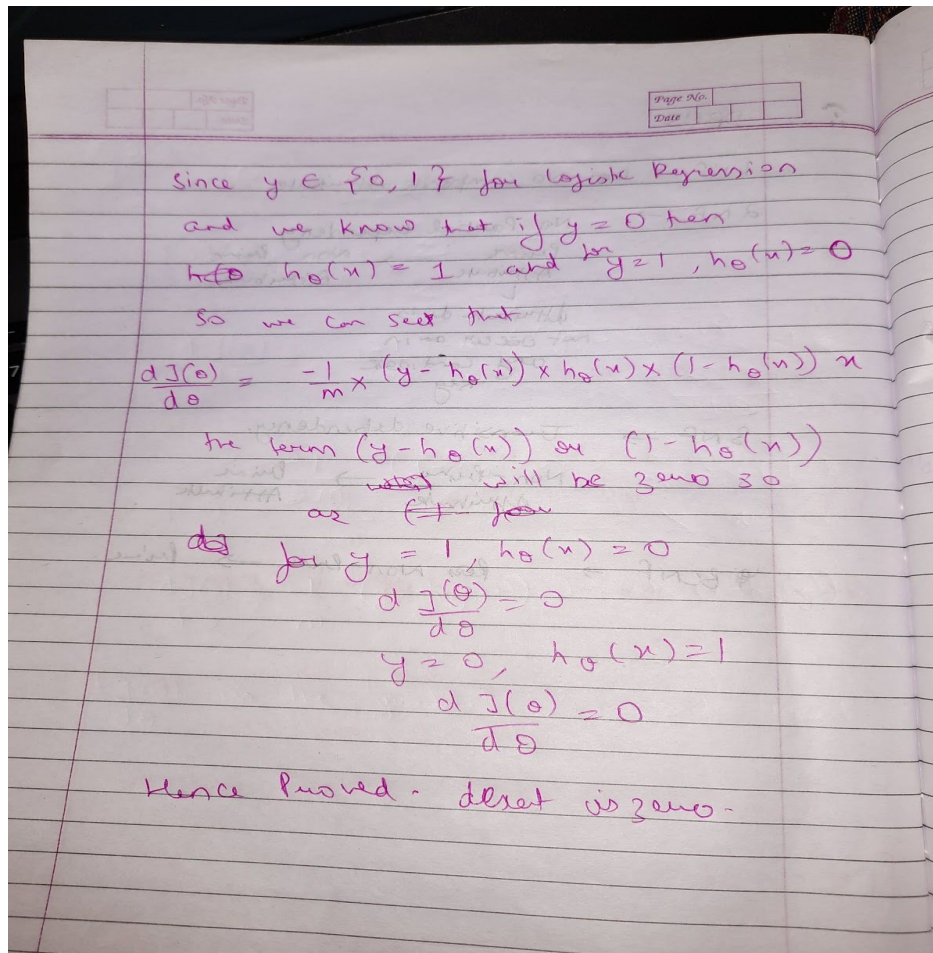 Page No.
Date
Since y ∈ {0, 1} for logistic Regression
and we know that if y = 0 then
hθ(x) = 1 and for y = 1, hθ(x) = 0
So we can see that
dJ(θ)/dθ = -1/m × (y - hθ(x)) × hθ(x) × (1 - hθ(x)) x
the term (y - hθ(x)) or (1 - hθ(x))
will be zero so
as
for y = 1, hθ(x) = 0
dJ(θ)/dθ = 0
y = 0, hθ(x) = 1
dJ(θ)/dθ = 0
Hence Proved. is zero.